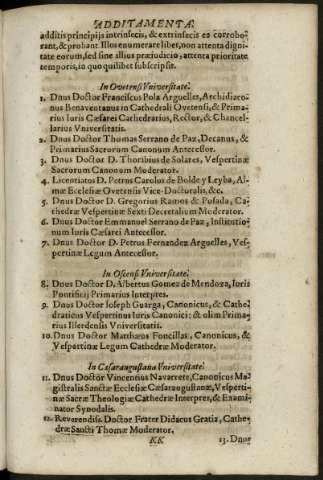 ADDITAMENTA.
additis principijs intrinsecis, & extrinsecis eo corrobo-
rant, & probant Illos enumerare libet, non attenta digni-
tate eorum, sed sine illius præiudicio, attenta prioritate
temporis, in quo quilibet subscripsit.
In Ovetensi Vniversitate.
1. Dnus Doctor Franciscus Pola Arguelles, Archidiaco-
nus Benaventanus in Cathedrali Ovetensi, & Prima-
rius Iuris Cæsarei Cathedrarius, Rector, & Chancel-
larius Vniversitatis.
2. Dnus Doctor Thomas Serrano de Paz, Decanus, &
Primarius Sacrorum Canonum Antecessor.
3. Dnus Doctor D. Thoribius de Solares, Vespertinæ
Sacrorum Canonum Moderator.
4. Licentiatus D. Petrus Carolus de Bolde y Leyba, Al-
mæ Ecclesiæ Ovetensis Vice-Doctoralis, &c.
5. Dnus Doctor D. Gregorius Ramos & Posada, Ca-
thedræ Vespertinæ Sexti Decretalium Moderator.
6. Dnus Doctor Emmanuel Serrano de Paz, Institutio-
num Iuris Cæsarei Antecessor.
7. Dnus Doctor D. Petrus Fernandez Arguelles, Ves-
pertinæ Legum Antecessor.
In Oscensi Vniversitate.
8. Dnus Doctor D. Albertus Gomez de Mendoza, Iuris
Pontificij Primarius Interpres.
9. Dnus Doctor Ioseph Guarga, Canonicus, & Cathe-
draticus Vespertinus Iuris Canonici: & olim Prima-
rius Illerdensis Vniversitatis.
10. Dnus Doctor Matthæus Foncillas, Canonicus, &
Vespertinæ Legum Cathedræ Moderator.
In Cæsaraugustana Vniversitate.
11. Dnus Doctor Vincentius Navarrete, Canonicus Ma-
gistralis Sanctæ Ecclesiæ Cæsaraugustanæ, Vesperti-
næ Sacræ Theologiæ Cathedræ Interpres, & Exami-
nator Synodalis.
12. Reverendiss. Doctor Frater Didacus Gratia, Cathe-
dræ Sancti Thomæ Moderator.
KK
13. Dnus